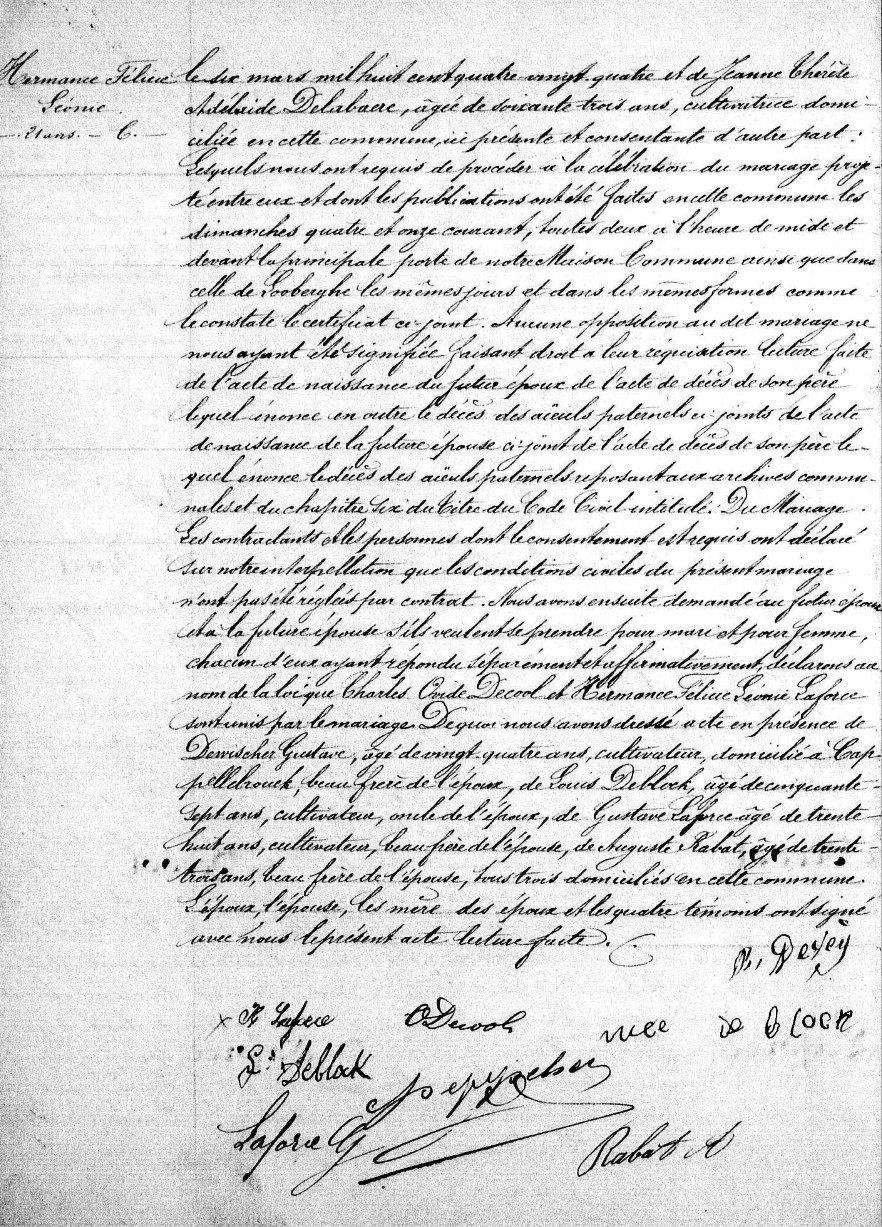 Hermance Félicie
Léonie
21 ans. - C.
le six mars mil huit cent quatre-vingt-quatre et de Jeanne Thérèse
Adélaïde Delabaere, âgée de soixante trois ans, cultivatrice domi-
ciliée en cette commune, ici présente et consentante d'autre part :
Lesquels nous ont requis de procéder à la célébration du mariage proje-
té entre eux et dont les publications ont été faites en cette commune les
dimanches quatre et onze courant, toutes deux à l'heure de midi et
devant la principale porte de notre Maison Commune ainsi que dans
celle de Looberghe les mêmes jours et dans les mêmes formes comme
le constate le certificat ci-joint. Aucune opposition au dit mariage ne
nous ayant été signifiée faisant droit à leur réquisition lecture faite
de l'acte de naissance du futur époux de l'acte de décès de son père
lequel énonce en outre le décès des aïeuls paternels ci-joints de l'acte
de naissance de la future épouse ci-joint de l'acte de décès de son père le-
quel énonce le décès des aïeuls paternels reposant aux archives commu-
nales et du chapitre six du Titre du Code Civil intitulé : Du Mariage.
Les contractants et les personnes dont le consentement est requis ont déclaré
sur notre interpellation que les conditions civiles du présent mariage
n'ont pas été réglées par contrat. Nous avons ensuite demandé au futur époux
et à la future épouse s'ils veulent se prendre pour mari et pour femme,
chacun d'eux ayant répondu séparément et affirmativement, déclarons au
nom de la loi que Charles Ovide Decool et Hermance Félicie Léonie Laforce
sont unis par le mariage. De quoi nous avons dressé acte en présence de
Devvischer Gustave, âgé de vingt-quatre ans, cultivateur, domicilié à Cap-
pellebrouck, beau frère de l'époux, de Louis Deblock, âgé de cinquante-
sept ans, cultivateur, oncle de l'époux, de Gustave Laforce âgé de trente-
huit ans, cultivateur, beau frère de l'épouse, de Auguste Rabat, âgé de trente-
trois ans, beau frère de l'épouse, tous trois domiciliés en cette commune.
L'époux, l'épouse, les mère des époux et les quatre témoins ont signé
avec nous le présent acte lecture faite.
H Laforce ODecool vuee de block
L. Deblock
Laforce G Rabat A